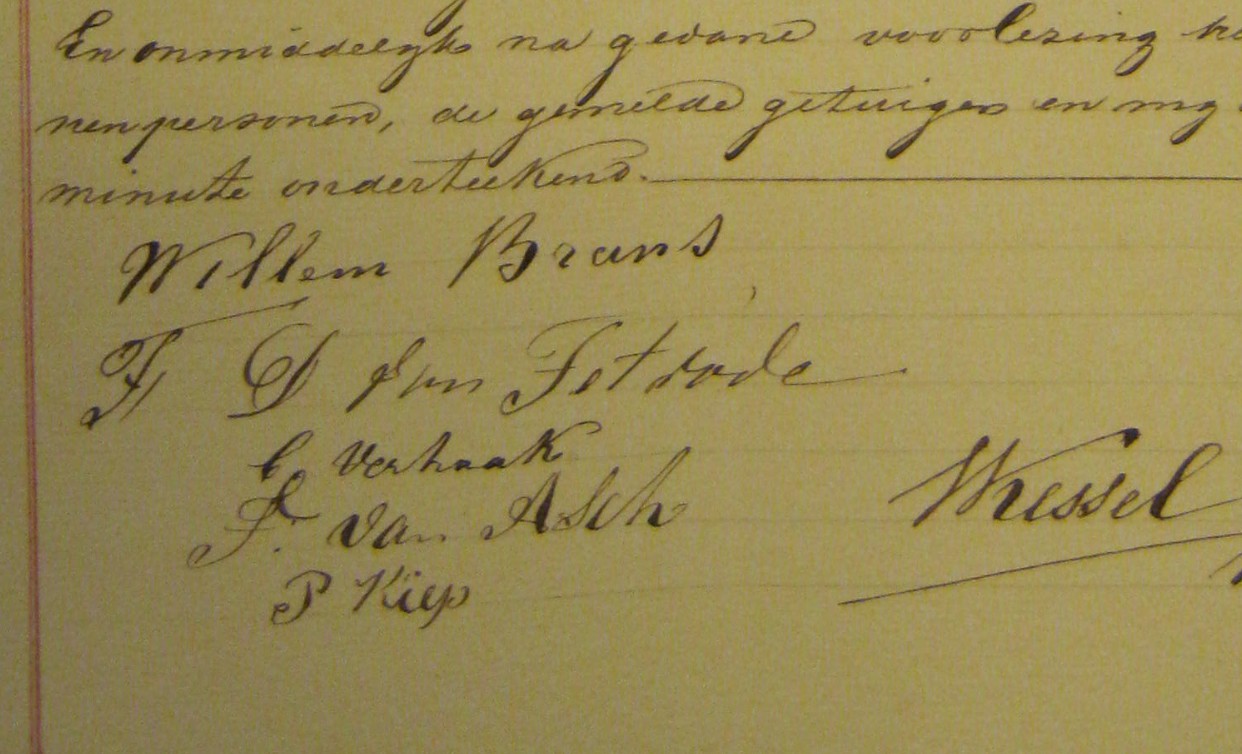 En onmiddelyk na gedane voorlezing
nen personen, de gemelde getuigen en my
minute onderteekend.
Willem Brans
D van
G Verhaak
F. van Asch
Wessel
P Kiep